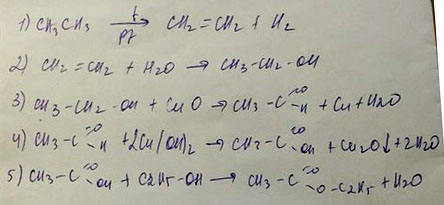 1) CH3CH3 →(t, Pt) CH2=CH2 + H2
2) CH2=CH2 + H2O → CH3-CH2-OH
3) CH3-CH2-OH + CuO → CH3-C(=O)H + Cu + H2O
4) CH3-C(=O)H + 2Cu(OH)2 → CH3-C(=O)OH + Cu2O↓ + 2H2O
5) CH3-C(=O)OH + C2H5-OH → CH3-C(=O)O-C2H5 + H2O